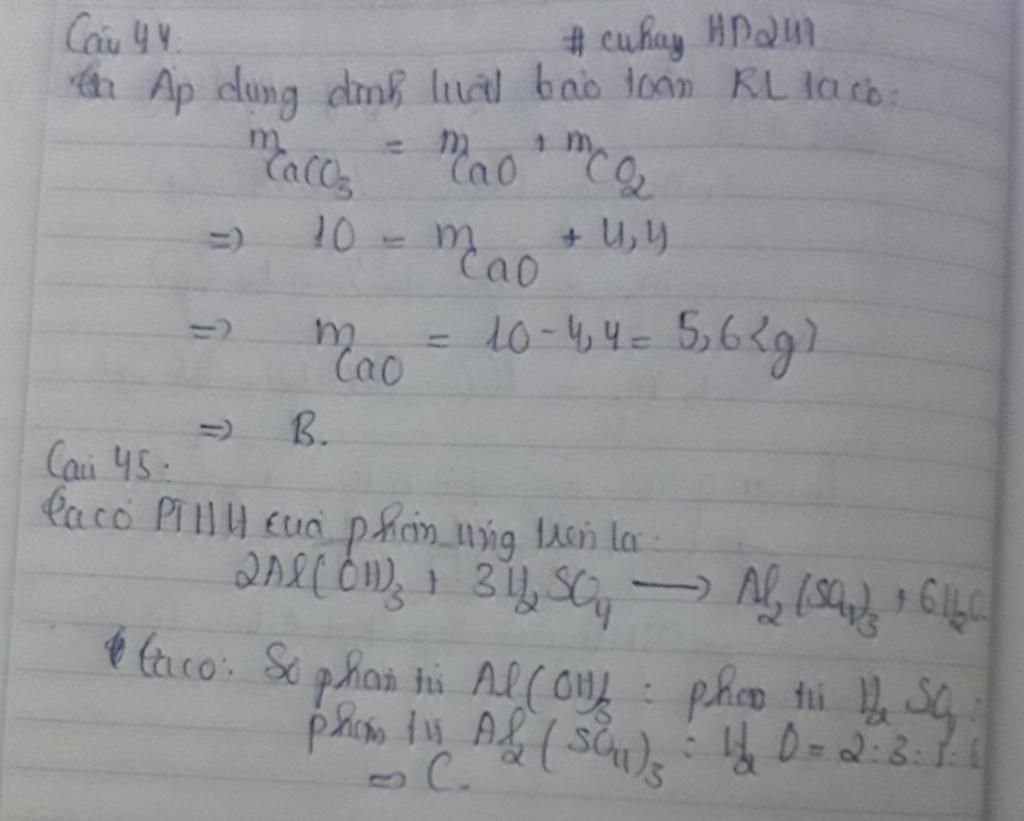 Câu 44.
# cuhay HD241
Áp dụng định luật bảo toàn KL ta có:
m CaCO3 = m CaO + m CO2
=> 10 = m CaO + 4,4
=> m CaO = 10 - 4,4 = 5,6 (g)
=> B.
Câu 45:
Ta có PTHH của phản ứng trên là:
2Al(OH)3 + 3H2SO4 → Al2(SO4)3 + 6H2O
Ta có: Số phân tử Al(OH)3 : phân tử H2SO4 :
phân tử Al2(SO4)3 : H2O = 2:3:1:6
=> C.